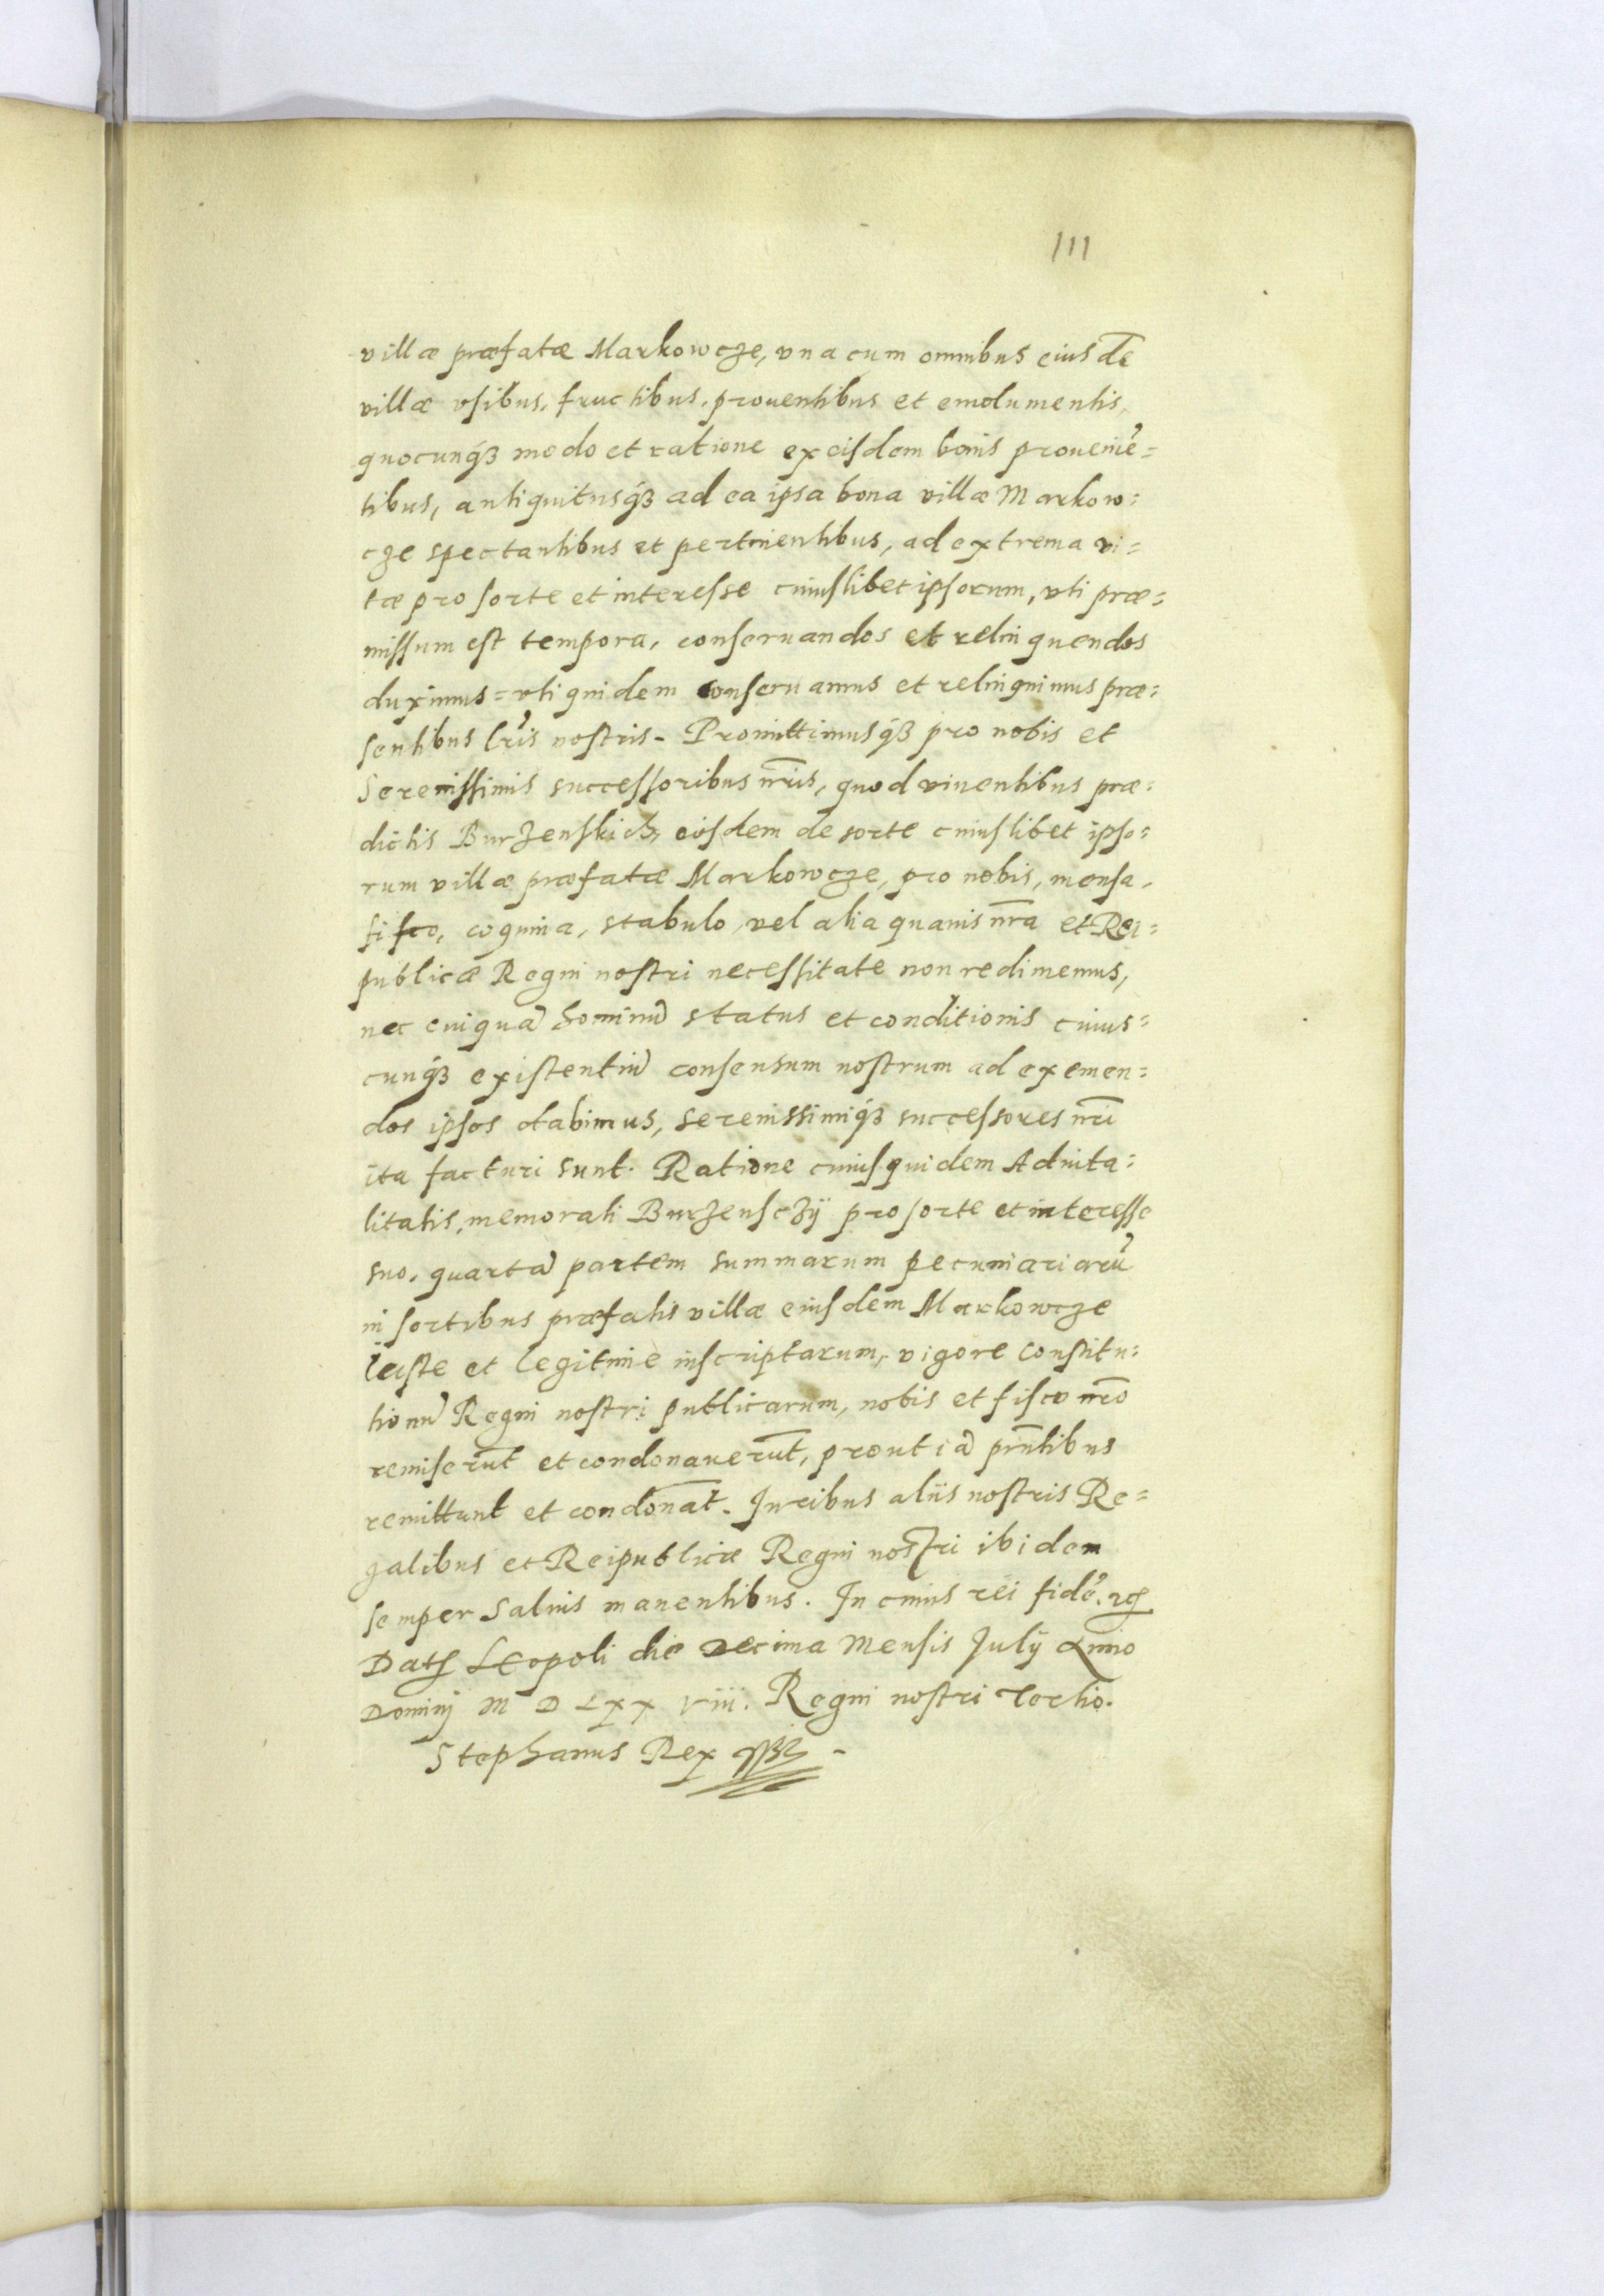 111
villæ præfatæ Markowcze, vna cum omnibus eiusdē
villæ vsibus, fructibus, prouentibus et emolumentis,
quocunqꝫ modo et ratione ex eisdem bonis proueniē=
tibus, antiquitusqꝫ ad ea ipsa bona villæ Markow=
cze spectantibus et pertinentibus, ad extrema vi=
tæ pro sorte et interesse cuiuslibet ipsorum, vti præ=
missum est tempora, conseruandos et relinquendos
duximus= vti quidem conseruamus et relinquimus præ=
sentibus lr̄is nostris. Promittimusqꝫ pro nobis et
Serenissimis successoribus nr̄is, quod viuentibus præ=
dictis Burzenskich, eisdem de sorte cuiuslibet ipso=
rum villæ præfatæ Markowcze, pro nobis, mensa,
fisco, coquina, stabulo, vel alia quauis nr̄a et Rei=
publicæ Regni nostri necessitate non redimemus,
nec cuiquā hominū status et conditionis cuius=
cunqꝫ existentiū consensum nostrum ad exemen=
dos ipsos dabimus, serenissimiqꝫ successores nr̄i
ita facturi sunt. Ratione cuiusquidem Aduita=
litatis, memorati Burzensczÿ pro sorte et interesse
suo, quartā partem summarum pecuniariarū
in sortibus præfatis villæ eiusdem Markowcze
iuste et legitimè inscriptarum, vigore constitu=
tionū Regni nostri publicarum, nobis et fisco nr̄o
remiserūt et condonauerūt, prout iā pn̄tibus
remittunt et condonāt. Iuribus aliis nostris Re=
galibus et Reipublicæ Regni nostri ibidem
semper saluis manentibus. In cuius rei fidē. ꝛꝯ
Datꝭ Leopoli die decima Mensis Julÿ Anno
Dominj M D Lxx viii. Regni nostri tertio.
Stephanus Rex ſſꝫ -